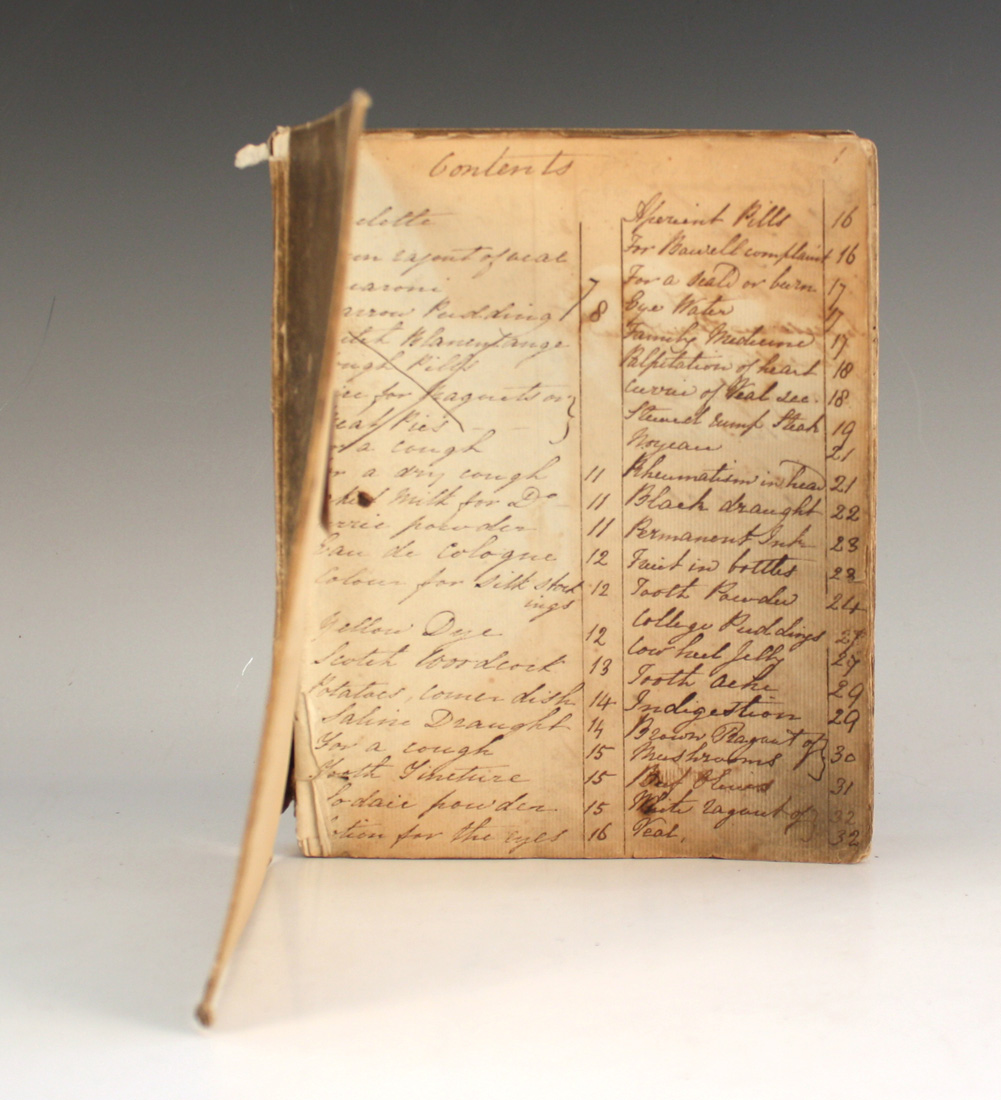 Contents
1
elette
ragout of veal
7
Pudding 8
Blanemange
Pills
for Raguets or
Pies - -
a cough
a dry cough 11
Milk for Do - 11
powder 11
Eau de Cologne 12
Colour for silk stock 12
ings
Yellow Dye 12
Scotch Woodcock 13
Potatoes, corner dish 14
Saline Draught 14
For a cough 15
Tooth Tincture 15
powder 15
for the eyes 16
Aperient Pills 16
For Bowell complaint 16
For a scald or burn 17
Eye Water 17
Family Medicine 17
Palpitation of heart 18
Currie of Veal &c. 18
Stewed rump Steak 19
Noyeau 21
Rheumatism in head 21
Black draught 22
Permanent Ink 23
Fruit in bottles 23
Tooth Powder 24
College Puddings 27
Cow heel Jelly 27
Tooth ache 29
Indigestion 29
Brown Ragout of
Mushrooms 30
Beef Olives 31
White ragout of 32
Veal. 32